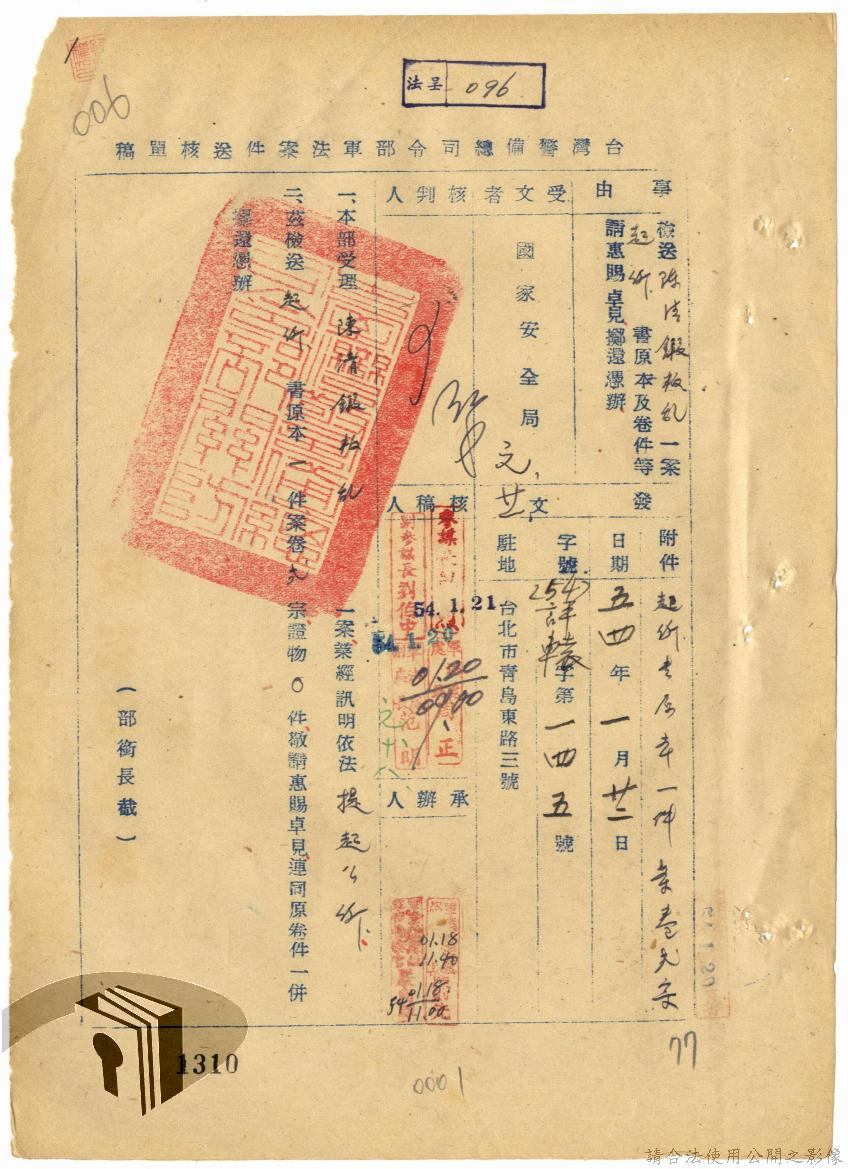 006
法呈 096
台灣警備總司令部軍法案件送核單稿
事由
檢送陳清鍛叛乱一案
起訴書原本及卷件等
請惠賜卓見擲還憑辦
受文者
國家安全局
核判人
發文
附件
起訴書原本一件案卷九宗
日期
五四年一月廿二日
字號
(54)詳轅字第一四五號
駐地
台北市青島東路三號
核稿人
參謀長
副參謀長劉
54.1.21
54.1.20
01.20
0900
承辦人
01.18
11.40
54 01.18
11.00
一、本部受理陳清鍛叛乱一案業經訊明依法提起公訴、
二、茲檢送起訴書原本一件案卷九宗證物0件、敬請惠賜卓見連同原卷件一併
擲還憑辦
(部銜長截)
1.20
77
1310
0001
請合法使用公開之影像